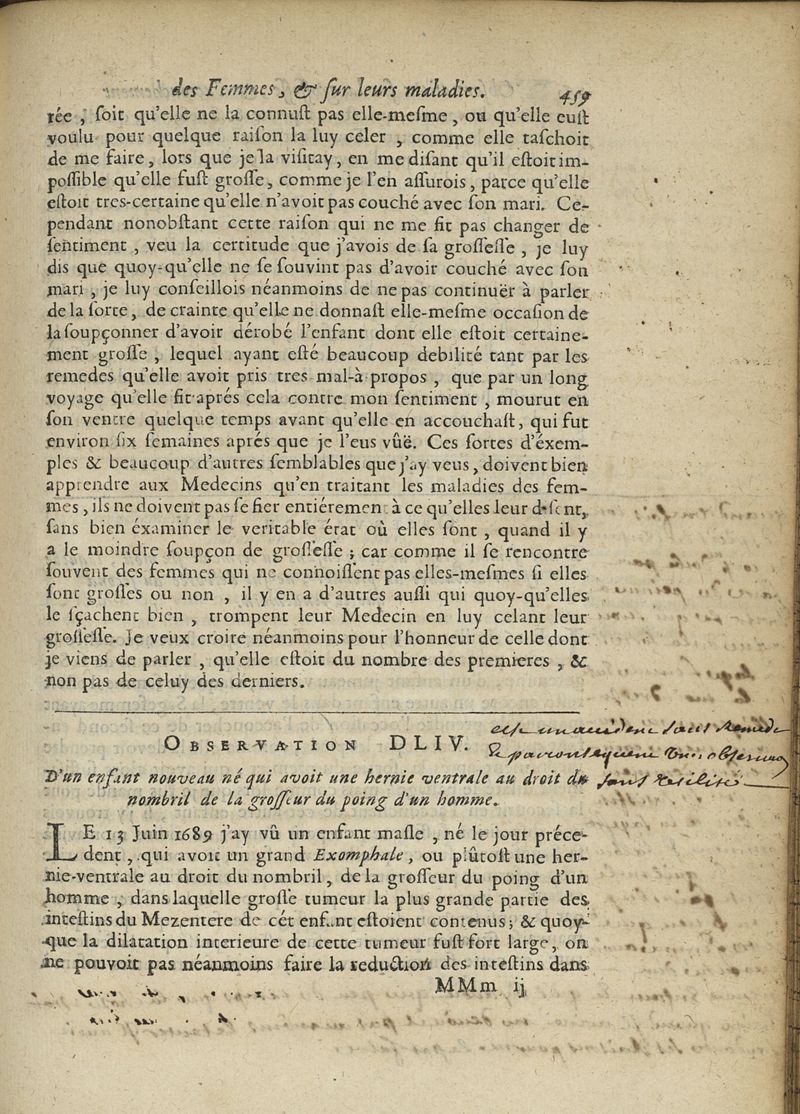 des Femmes, & ſur leurs maladies. 459
rée , ſoit qu'elle ne la connuſt pas elle-meſme, ou qu'elle euſt
voulu pour quelque raiſon la luy celer , comme elle taſchoit
de me faire, lors que je la viſitay, en me diſant qu'il eſtoit im-
poſſible qu'elle fuſt groſſe, comme je l'en aſſurois, parce qu'elle
eſtoit tres-certaine qu'elle n'avoit pas couché avec ſon mari. Ce-
pendant nonobſtant cette raiſon qui ne me fit pas changer de
ſentiment , veu la certitude que j'avois de ſa groſſeſſe , je luy
dis que quoy-qu'elle ne ſe ſouvint pas d'avoir couché avec ſon
mari , je luy conſeillois néanmoins de ne pas continuër à parler
de la ſorte, de crainte qu'elle ne donnaſt elle-meſme occaſion de
la ſoupçonner d'avoir dérobé l'enfant dont elle eſtoit certaine-
ment groſſe , lequel ayant eſté beaucoup debilité tant par les
remedes qu'elle avoit pris tres-mal-à propos , que par un long
voyage qu'elle fit aprés cela contre mon ſentiment , mourut en
ſon ventre quelque temps avant qu'elle en accouchaſt, qui fut
environ ſix ſemaines aprés que je l'eus vûë. Ces ſortes d'éxem-
ples & beaucoup d'autres ſemblables que j'ay veus, doivent bien
apprendre aux Medecins qu'en traitant les maladies des fem-
mes, ils ne doivent pas ſe fier entiérement à ce qu'elles leur diſent,
ſans bien éxaminer le veritable état où elles ſont , quand il y
a le moindre ſoupçon de groſſeſſe ; car comme il ſe rencontre
ſouvent des femmes qui ne connoiſſent pas elles-meſmes ſi elles
ſont groſſes ou non , il y en a d'autres auſſi qui quoy-qu'elles
le ſçachent bien , trompent leur Medecin en luy celant leur
groſſeſſe. Je veux croire néanmoins pour l'honneur de celle dont
je viens de parler , qu'elle eſtoit du nombre des premieres , &
non pas de celuy des derniers.
OBSERVATION DLIV.
D'un enfant nouveau né qui avoit une hernie ventrale au droit du
nombril de la groſſeur du poing d'un homme.
LE 13 Juin 1689 j'ay vû un enfant maſle , né le jour préce-
dent , qui avoit un grand Exomphale, ou plûtoſt une her-
nie-ventrale au droit du nombril, de la groſſeur du poing d'un
homme , dans laquelle groſſe tumeur la plus grande partie des
inteſtins du Mezentere de cét enfant eſtoient contenus ; & quoy-
que la dilatation interieure de cette tumeur fuſt fort large, on
ne pouvoit pas néanmoins faire la reduction des inteſtins dans
MMm ij